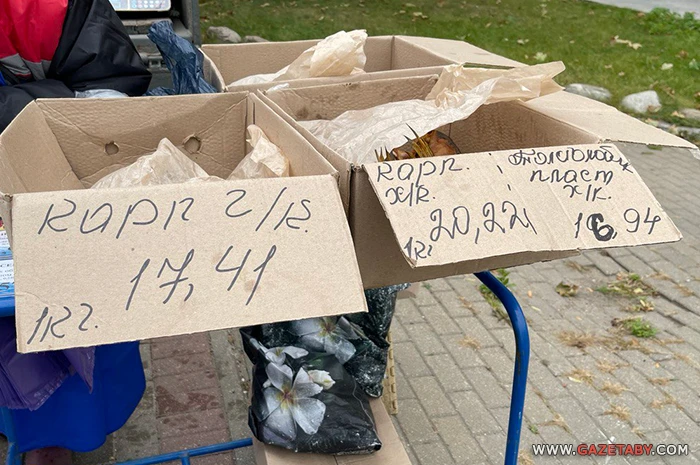 карп г/к.
17,41
1кг.
карп.
х/к.
20,22
1кг
Толстолоб.
пласт
х/к.
16,94
WWW.GAZETABY.COM